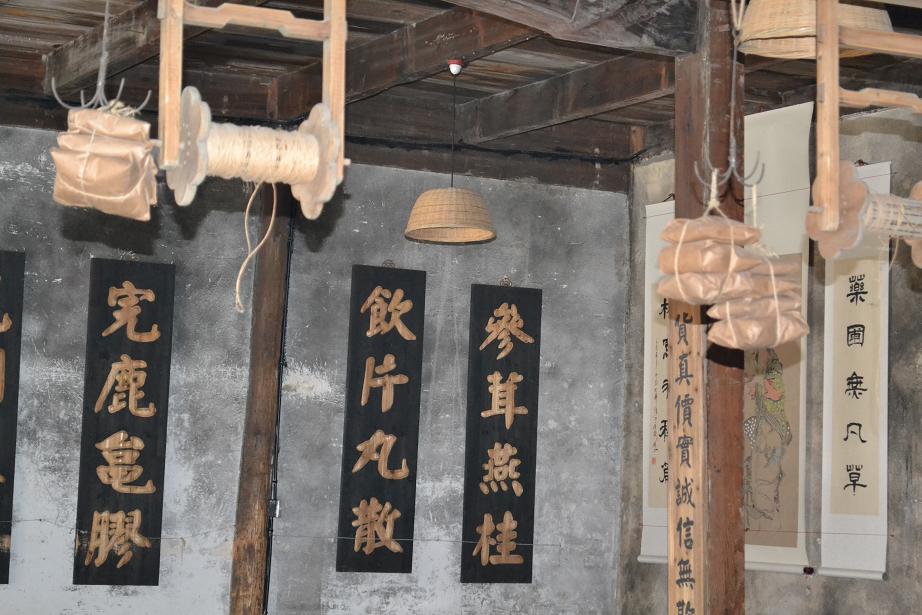 虎鹿龜膠
飲片丸散
參茸燕桂
貨真價實誠信無欺
藥圃無凡草